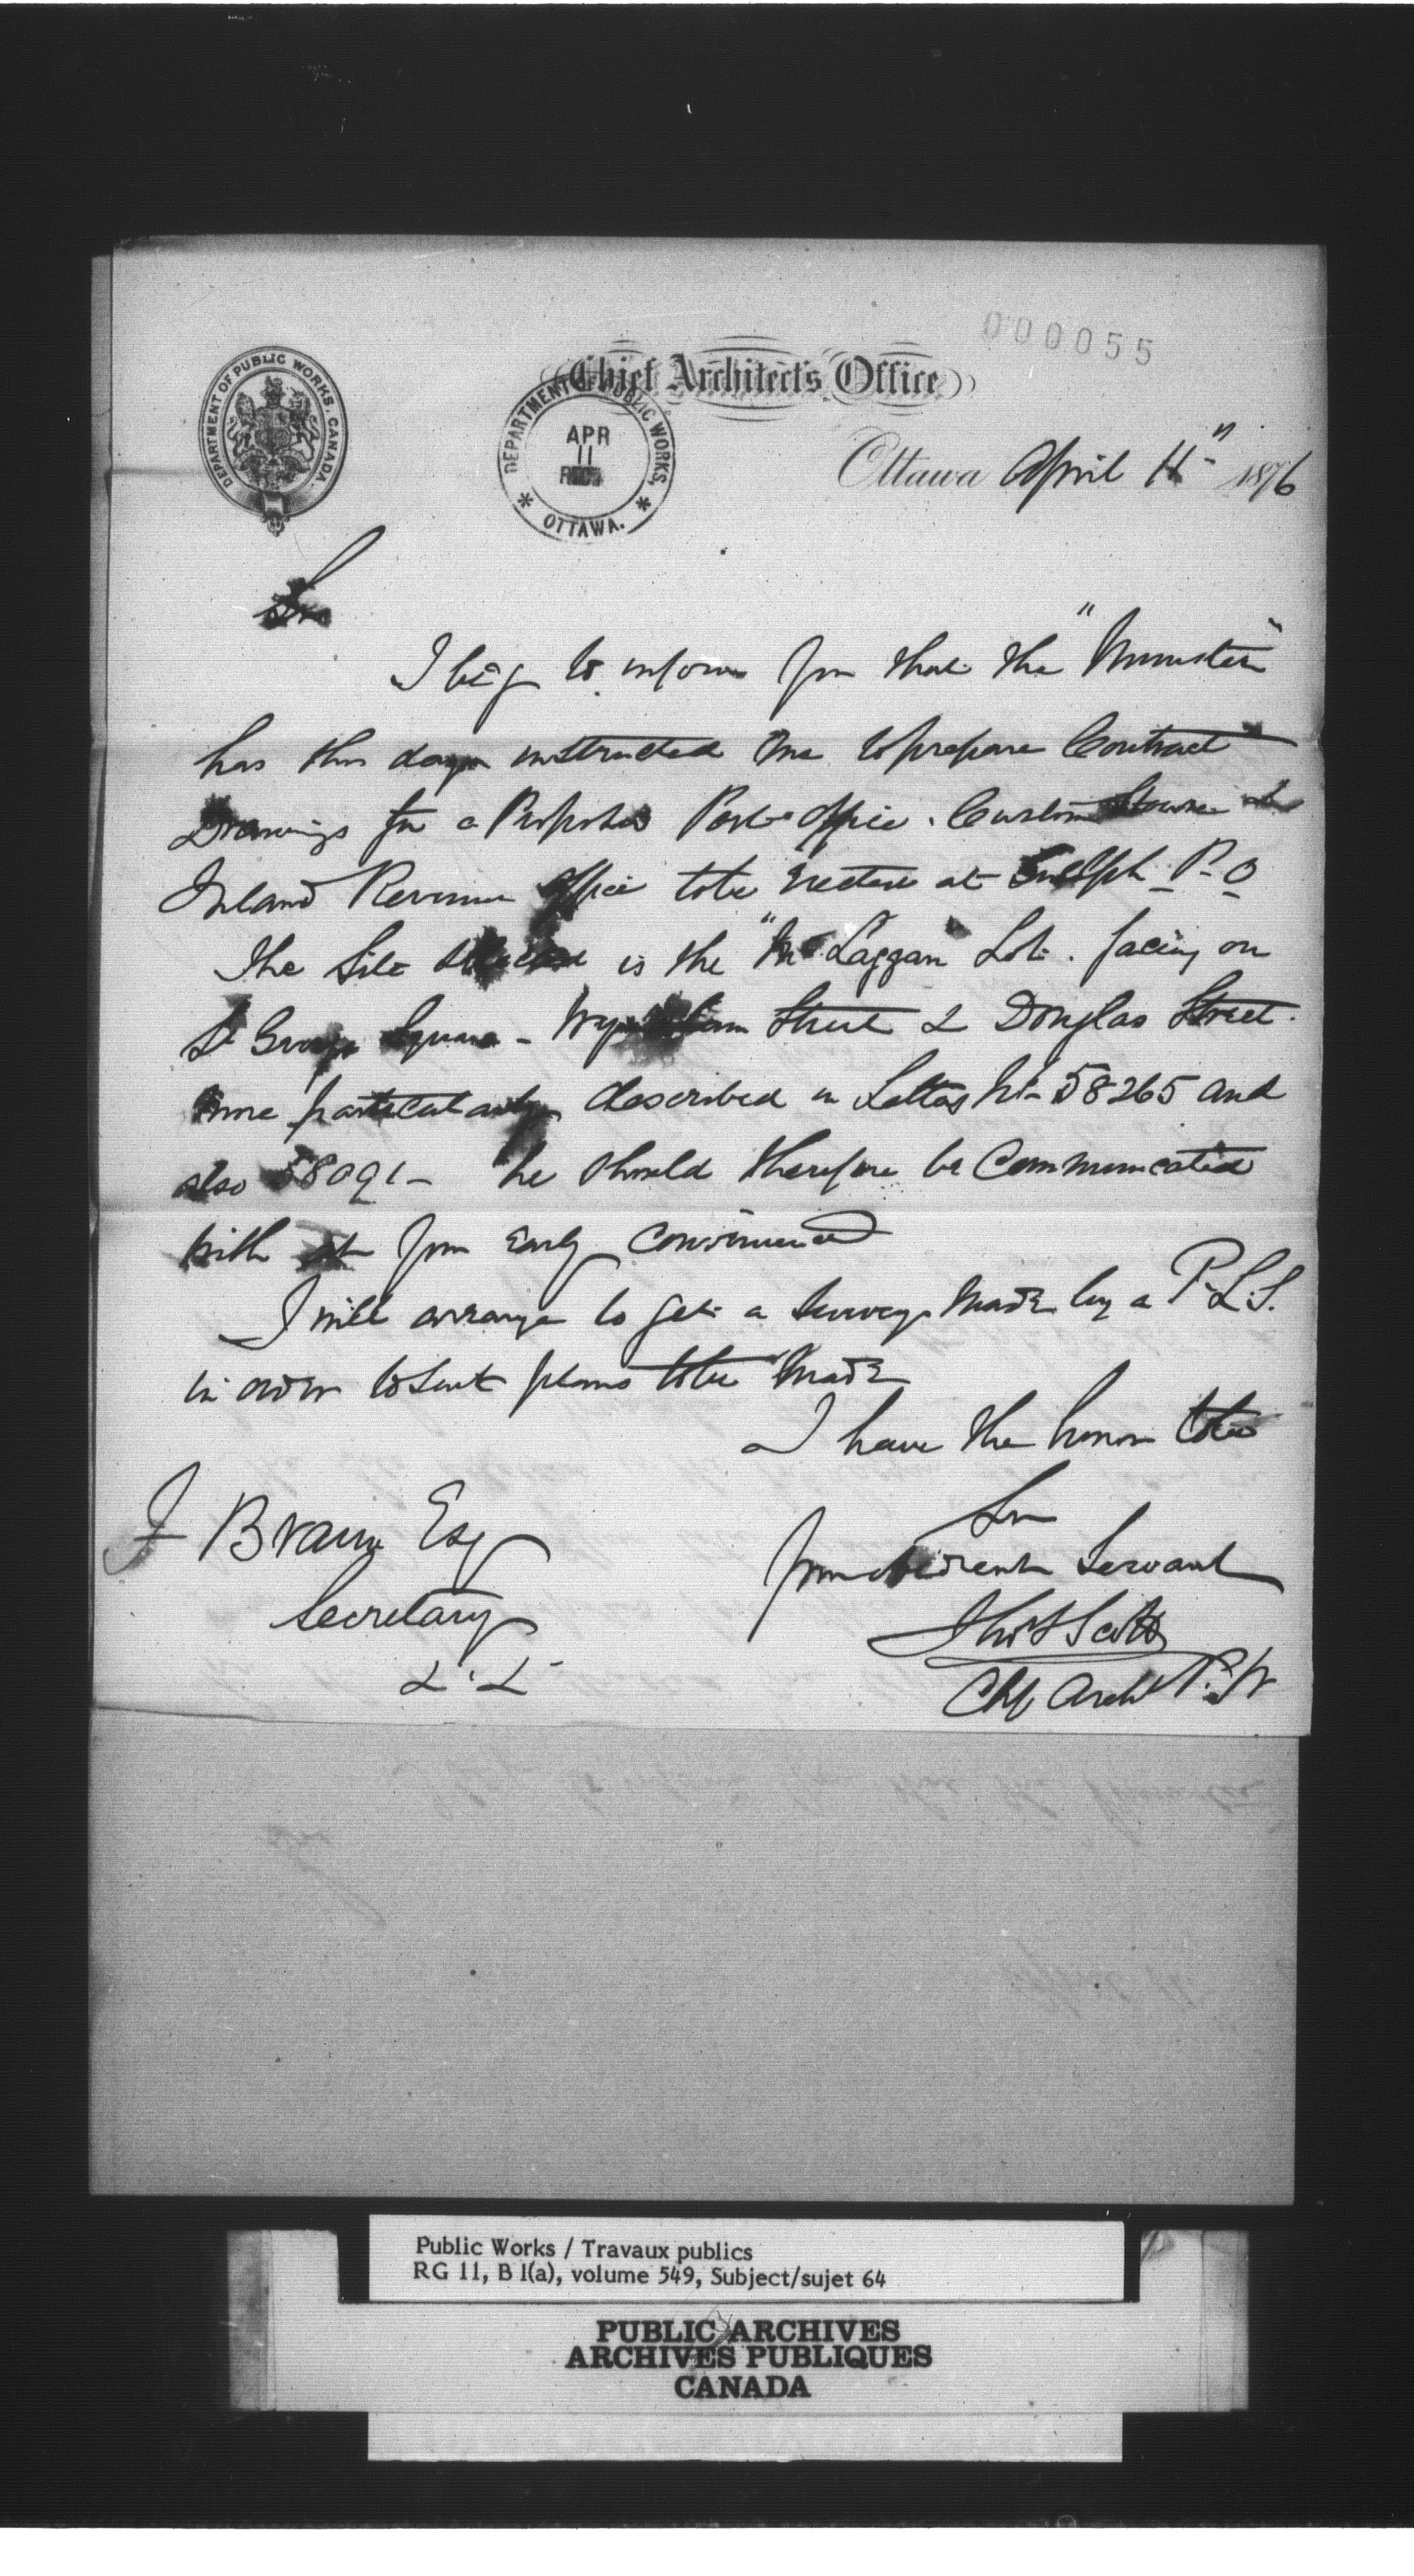 000055
Chief Architect's Office
DEPARTMENT OF PUBLIC WORKS, CANADA.
DEPARTMENT OF PUBLIC WORKS,
APR
11
OTTAWA.
Ottawa April 11" 1876
Sir
I beg to inform you that the "Minister"
has this day instructed me to prepare Contract
Drawings for a Proposed Post Office. Custom House
Inland Revenue Office to be Erected at Guelph P-O
The Site selected is the "McLaggan" Lot. facing on
St George Square - Wyndham Street & Douglas Street.
more particularly described in Letters No- 58265 and
also 58091 - he should therefore be Communicated
with at your Early Convenience
I will arrange to get a Survey made by a P.L.S.
in order to suit plans to be made
I have the honor to be
Sir
Your obedient Servant
Thos S Scott
Chf Archt P.W
F Braun Esq
Secretary
Public Works / Travaux publics
RG 11, B 1(a), volume 549, Subject/sujet 64
PUBLIC ARCHIVES
ARCHIVES PUBLIQUES
CANADA